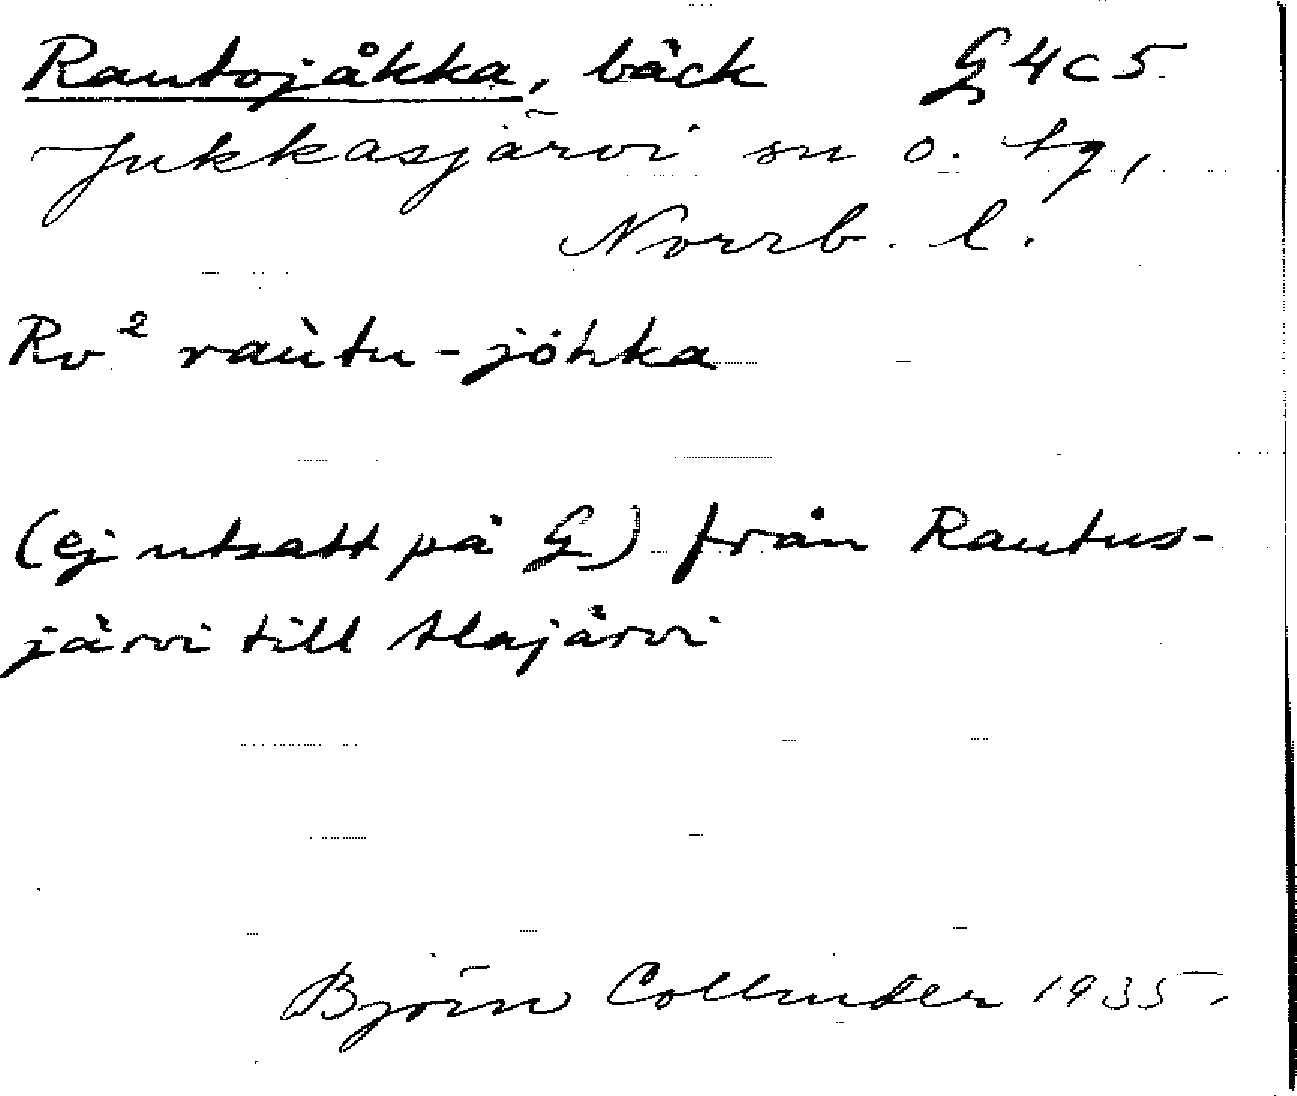 Rautojåkka, bäck G 4 c 5.
Jukkasjärvi sn o. tg,
Norrb. l.
Rv² raùtu-jòhka
(ej utsatt på G) från Rautus-
järvi till Alajärvi
Björn Collinder 1935.